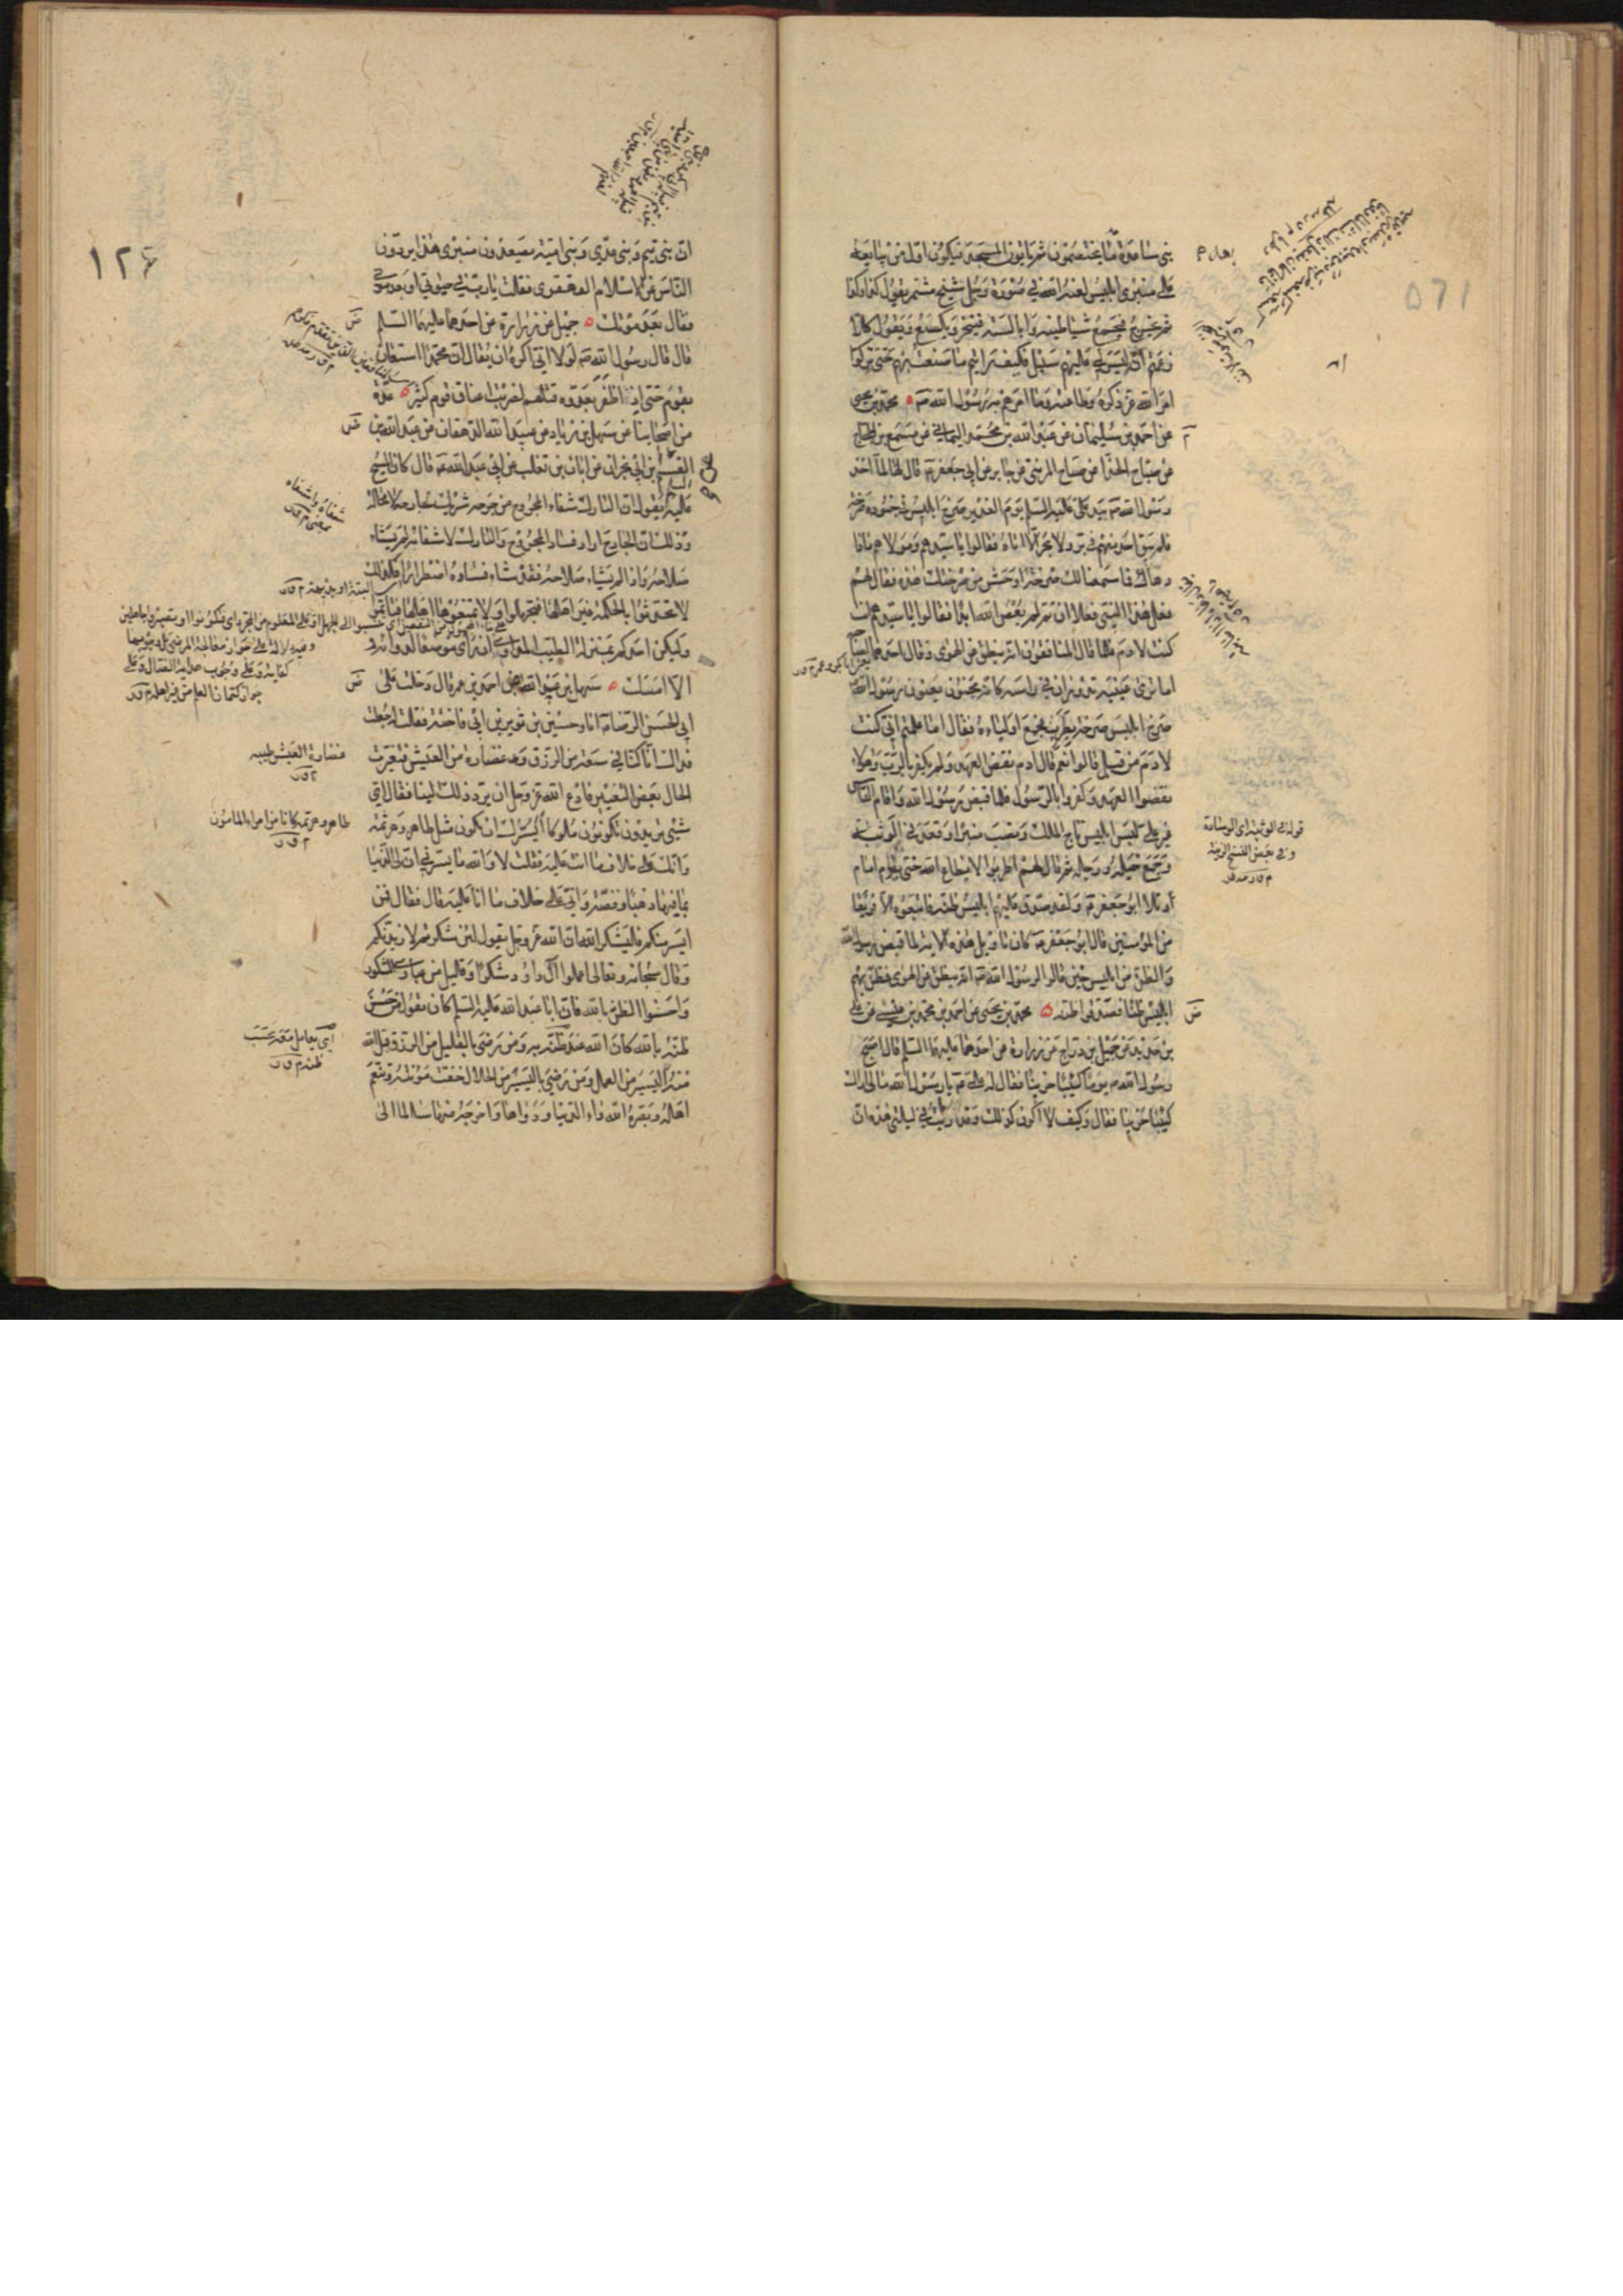 بنى ساعدة ما يختصمون ثم يأتون المسجد فيكون اول من يبايعه
على منبرى ابليس لعنه الله فى صورة رجل شيخ مشمر يقول كذا وكذا
ثم خرج فجمع شياطينه وابالسته فنخر وكسع ويقول كلا
زعمتم ان ليس لى عليهم سبيل فكيف رايتم ما صنعت بهم حتى تركوا
امر الله عز ذكره وطاعته وما امرهم به رسول الله ص محمد بن يحيى
عن احمد بن سليمان عن عبد الله بن محمد اليمانى عن مسمع بن الحجاج
عن صباح الحذا عن صباح المزنى عن جابر عن ابى جعفر ع قال لما اخذ
رسول الله ص بيد على عليه السلم يوم الغدير صرخ ابليس فى جنوده صرخة
فلم يبق احد منهم فى بر ولا بحر الا اتاه فقالوا يا سيدهم ومولاهم ماذا
دهاك فما سمعنا لك صرخة اوحش من صرختك هذه فقال لهم
فعل هذا النبى فعلا ان تم لم يعص الله ابدا فقالوا يا سيدهم انت
كنت لادم فلما قال المنافقون انه ينطق عن الهوى وقال احدهما لصاحبه
اما ترى عينيه تدوران فى راسه كانه مجنون يعنون رسول الله
صرخ ابليس صرخة بطرب فجمع اولياءه فقال اما علمتم انى كنت
لادم من قبل قالوا نعم قال ادم نقض العهد ولم يكفر بالرب وهؤلاء
نقضوا العهد وكفروا بالرسول فلما قبض رسول الله واقام الناس
غير على لبس ابليس تاج الملك ونصب منبرا وقعد فى الوثبة
وجمع خيله ورجله ثم قال لهم اطربوا لا يطاع الله حتى يقوم امام
وتلا ابو جعفر ع ولقد صدق عليهم ابليس ظنه فاتبعوه الا فريقا
من المؤمنين قال ابو جعفر ع كان تاويل هذه الاية لما قبض رسول الله
والظن من ابليس حين قالوا لرسول الله ص انه ينطق عن الهوى فظن بهم
ابليس ظنا فصدقوا ظنه محمد بن يحيى عن احمد بن محمد بن عيسى عن على
بن حديد عن جميل بن دراج عن زرارة عن احدهما عليهما السلم قال اصبح
رسول الله ص يوما كئيبا حزينا فقال له على ع يا رسول الله ما لى اراك
كئيبا حزينا فقال وكيف لا اكون كذلك وقد رايت فى ليلتى هذه ان
قوله فى الوثبة اى الوسادة
وفى بعض النسخ الزينة
١٢٤
ان بنى تيم وبنى عدى وبنى امية يصعدون منبرى هذا يردون
الناس عن الاسلام القهقرى فقلت يا رب فى حيوتى او بعد موتى
فقال بعد موتك جميل عن زرارة عن احدهما عليهما السلم
قال قال رسول الله ص لولا انى اكره ان يقال ان محمدا استعان
بقوم حتى اذا ظفر بعدوه قتلهم لضربت اعناق قوم كثير عدة
من اصحابنا عن سهل بن زياد عن عبيد الله الدهقان عن عبد الله بن
القسم بن ابى نجران عن ابان بن تغلب عن ابى عبد الله ع قال كان المسيح
عليه السلم يقول ان التارك شفاء المجروح من جرحه شريك لجارحه لا محالة
وذلك ان الجارح اراد فساد المجروح والتارك لاشفائه لم يشاء
صلاحه واذا لم يشاء صلاحه فقد شاء فساده اضطرارا فكذلك
لا تحدثوا بالحكمة غير اهلها فتجهلوا ولا تمنعوها اهلها فتاثموا
وليكن احدكم بمنزلة الطبيب المداوى ان راى موضعا لدوائه
والا امسك سهل بن عبيد الله عن احمد بن عمر قال دخلت على
ابى الحسن الرضا ع انا وحسين بن ثوير بن ابى فاختة فقلت له جعلت
فداك انا كنا فى سعة من الرزق وغضارة من العيش فتغيرت
الحال بعض التغيير فادع الله عز وجل ان يرد ذلك الينا فقال اى
شىء تريدون تكونون ملوكا ايسرك ان تكون مثل طاهر وهرثمة
وانك على خلاف ما انت عليه فقلت لا والله ما يسرنى ان لى الدنيا
بما فيها ذهبا وفضة وانى على خلاف ما انا عليه قال فقال فمن
ايسر منكم فليشكر الله ان الله عز وجل يقول لئن شكرتم لازيدنكم
وقال سبحانه وتعالى اعملوا آل داود شكرا وقليل من عبادى الشكور
واحسنوا الظن بالله فان ابا عبد الله عليه السلم كان يقول من حسن
ظنه بالله كان الله عند ظنه به ومن رضى بالقليل من الرزق قبل الله
منه اليسير من العمل ومن رضى باليسير من الحلال خفت مؤنته وتنعم
اهله وبصره الله داء الدنيا ودواءها واخرجه منها سالما الى
شفاه واشفاه
بمعنى م ق ر
غضارة العيش طيبه
م ق ر
طاهر وهرثمة كانا من امراء المامون
م ق ر
اى يعامل معه بحسب
ظنه م ق ر